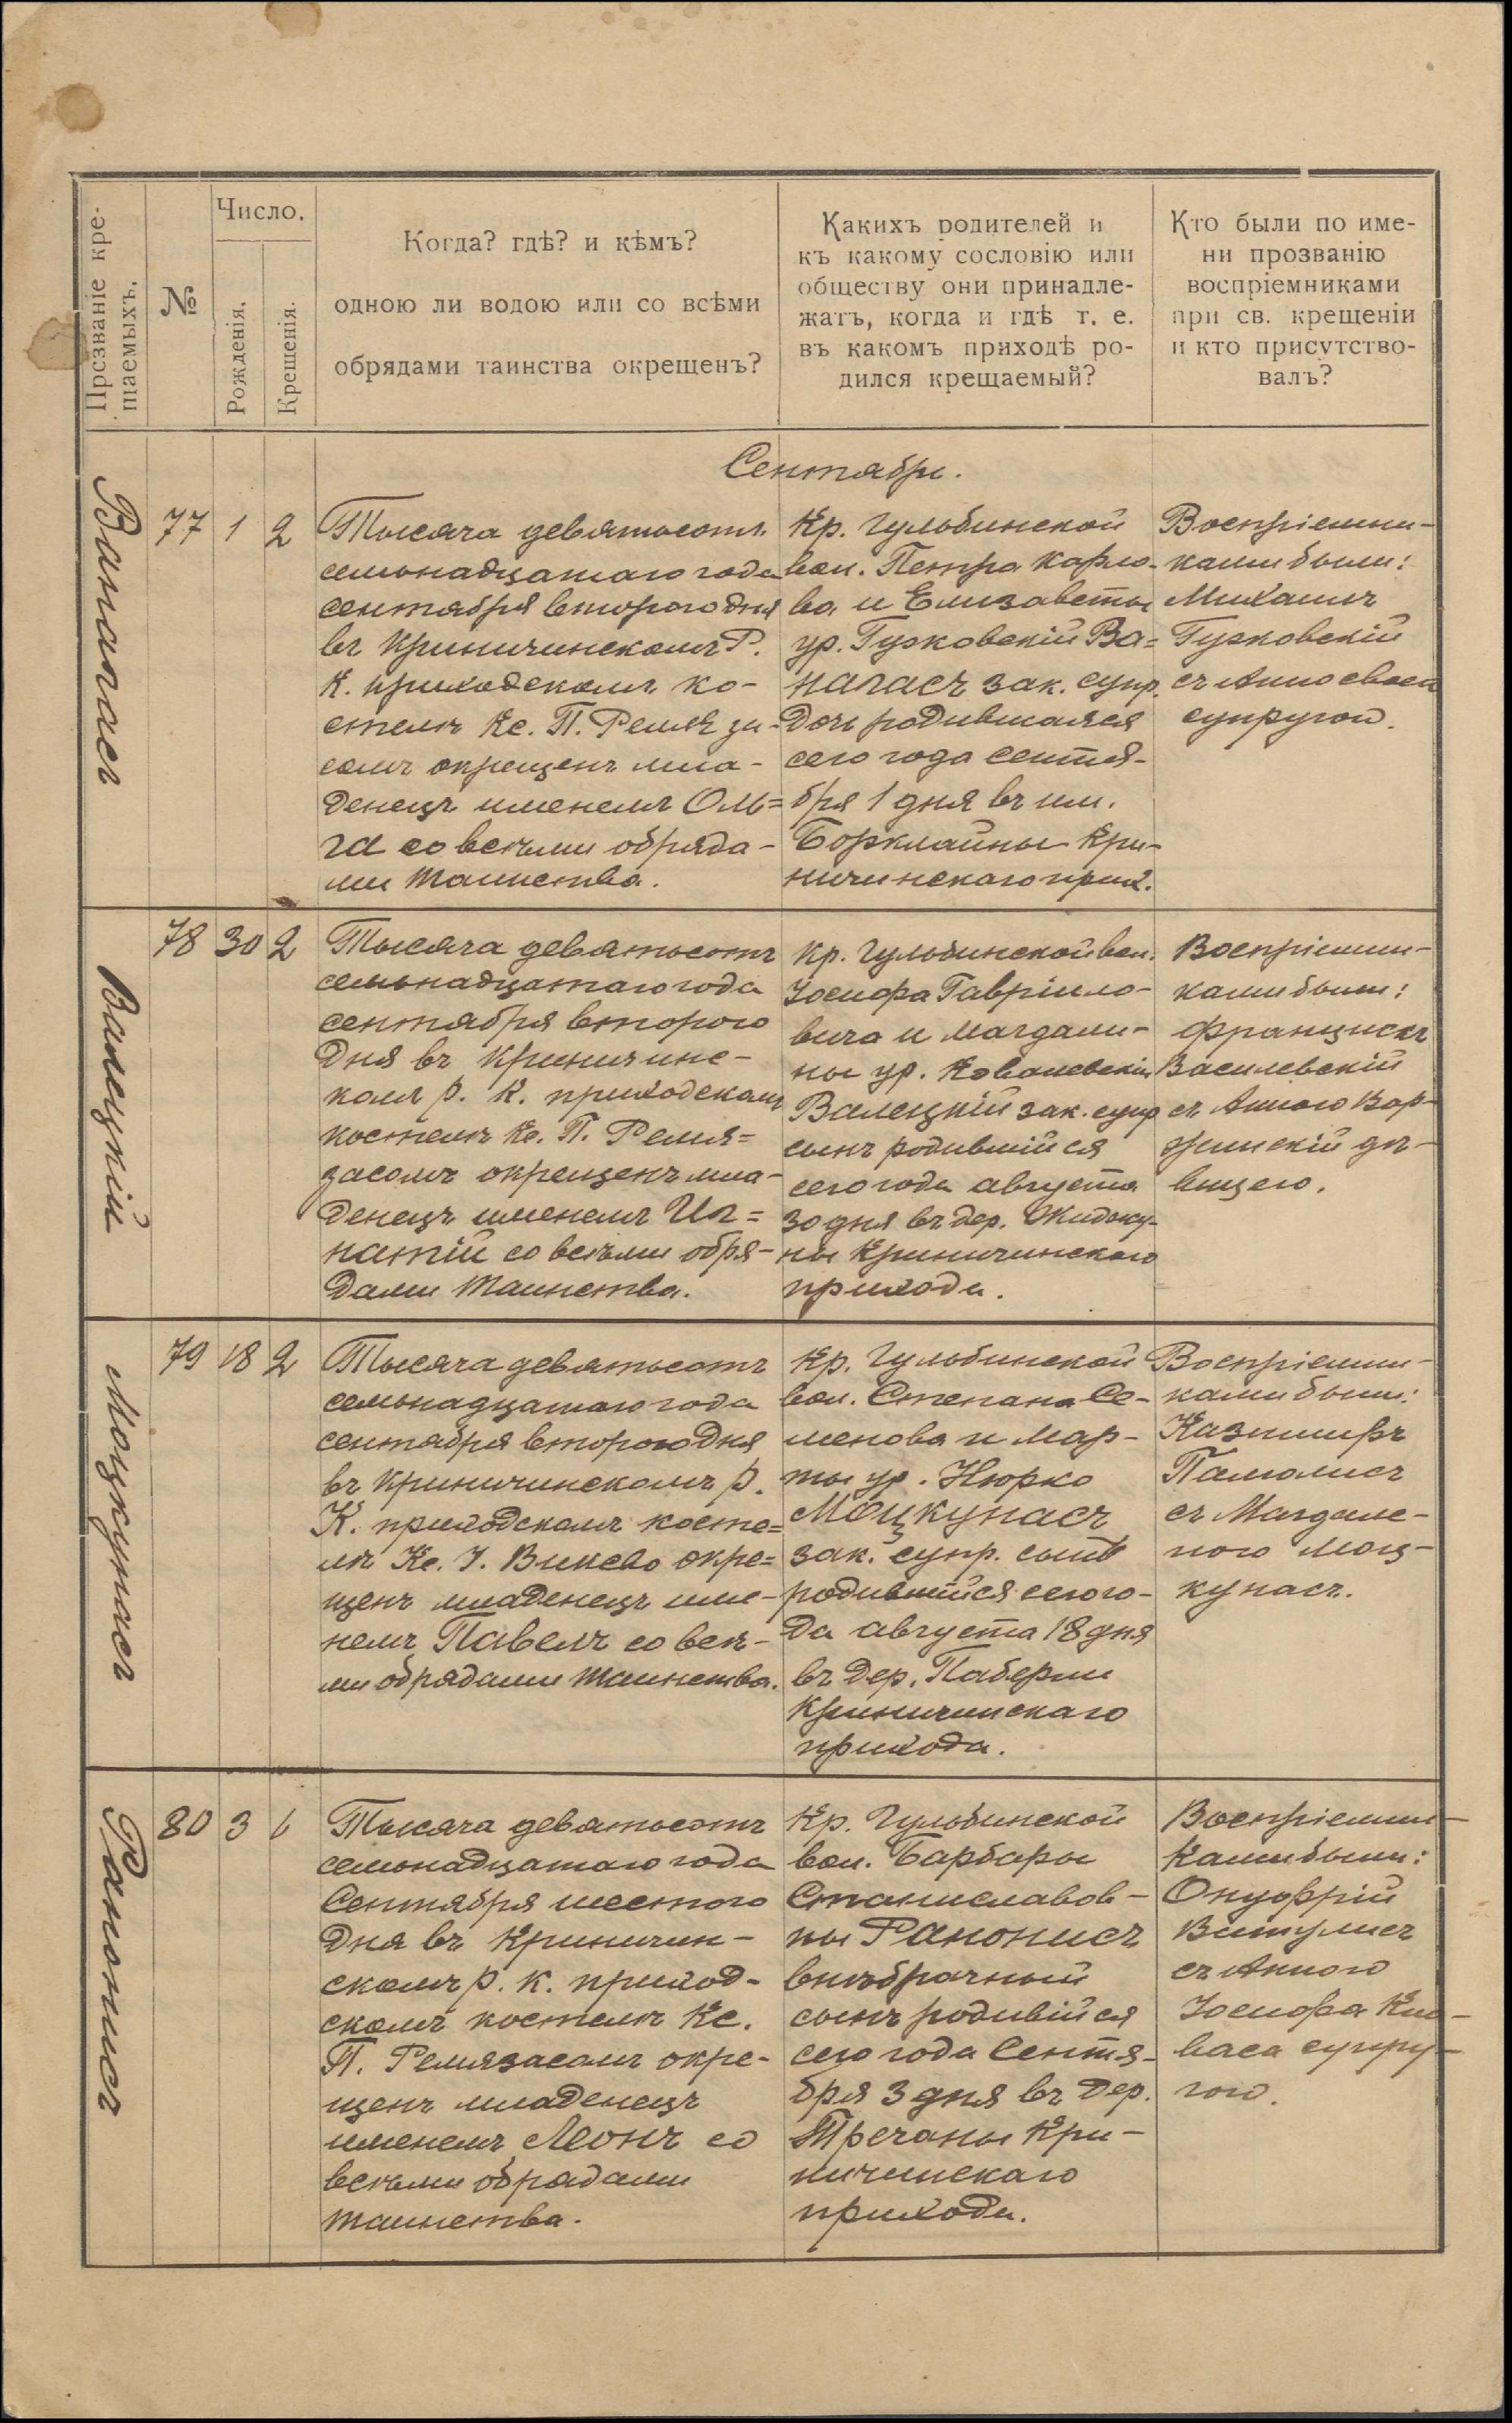 Прозваніе кре-
щаемыхъ.
№
Число.
Рожденія.
Крещенія.
Когда? гдѣ? и кѣмъ?
одною ли водою или со всѣми
обрядами таинства окрещенъ?
Какихъ родителей и
къ какому сословію или
обществу они принадле-
жатъ, когда и гдѣ т. е.
въ какомъ приходѣ ро-
дился крещаемый?
Кто были по име-
ни прозванію
воспріемниками
при св. крещеніи
и кто присутство-
валъ?
Сентябрь.
Ванагасъ
77
1
2
Тысяча девятьсотъ
семьнадцатаго года
сентября второго дня
въ Криничинскомъ Р.
К. приходскомъ ко-
стелѣ Кс. П. Ремя за-
сомъ окрещенъ мла-
денецъ именемъ Оль=
га со всѣми обряда-
ми таинства.
Кр. Гульбинской
вол. Петра Карло-
ва и Елизаветы
ур. Гурковскій Ва=
нагасъ зак. супр.
дочь родившаяся
сего года сентя-
бря 1 дня въ им.
Борклайны Кри-
ничинскаго прих.
Воспріемни-
ками были:
Михаилъ
Гурковскій
съ Анною своей
супругой.
Валецкій
78
30
2
Тысяча девятьсотъ
семьнадцатаго года
сентября второго
дня въ Криничинс-
комъ р. К. приходскомъ
костелѣ Кс. П. Ремя=
засомъ окрещенъ мла-
денецъ именемъ Иг=
натій со всѣми обря-
дами таинства.
Кр. Гульбинской вол.
Іосифа Гавріило-
вича и Магдали-
ны ур. Ковалевскій
Валецкій зак. супр
сынъ родившійся
сего года августа
30 дня въ дер. Жидку-
ны Криничинскаго
прихода.
Воспріемни-
ками были:
Францискъ
Василевскій
съ Анною Вар-
жинскій дѣ-
вицею.
Моцкунасъ
79
18
2
Тысяча девятьсотъ
семьнадцатаго года
сентября второго дня
въ Криничинскомъ р.
К. приходскомъ косте=
лѣ Кс. І. Викево окре=
щенъ младенецъ име-
немъ Павелъ со всѣ-
ми обрядами таинства.
Кр. Гульбинской
вол. Степана Се-
менова и Мар-
ты ур. Нюрко
Моцкунасъ
зак. супр. сынъ
родившійся сего го-
да августа 18 дня
въ дер. Пабержи
Криничинскаго
прихода.
Воспріемни-
ками были:
Казимиръ
Памолисъ
съ Магдале-
ною Моц-
кунасъ.
Ранонисъ
80
3
6
Тысяча девятьсотъ
семьнадцатаго года
Сентября шестого
дня въ Криничин-
скомъ р. К. приход-
скомъ костелѣ Кс.
П. Ремязасомъ окре-
щенъ младенецъ
именемъ Леонъ со
всѣми обрядами
таинства.
Кр. Гульбинской
вол. Барбары
Станиславов-
ны Ранонисъ
внѣбрачный
сынъ родивійся
сего года Сентя-
бря 3 дня въ дер.
Тречаны Кри-
ничинскаго
прихода.
Воспріемни-
ками были:
Онуфрій
Витулисъ
съ Анною
Іосифа Кли-
васа супру-
гою.